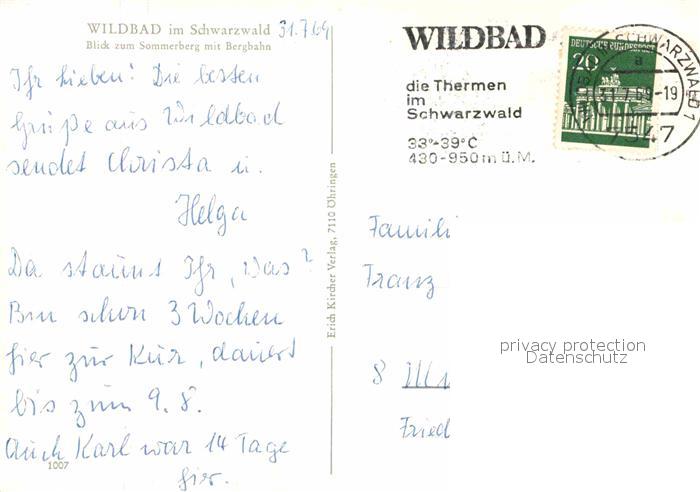 WILDBAD im Schwarzwald 31.7.69
Blick zum Sommerberg mit Bergbahn
Ihr Lieben! Die besten
Grüße aus Wildbad
sendet Christa u.
Helga
Da staunt Ihr, was?
Bin schon 3 Wochen
hier zur Kur, dauert
bis zum 9.8.
Auch Karl war 14 Tage
hier.
1007
Erich Kircher Verlag, 7110 Öhringen
WILDBAD
die Thermen
im
Schwarzwald
33°-39°C
430-950m ü.M.
DEUTSCHE BUNDESPOST
20
SCHWARZWALD 1
a
31.7.69-19
7547
Famili
Franz
privacy protection
Datenschutz
8
Fried